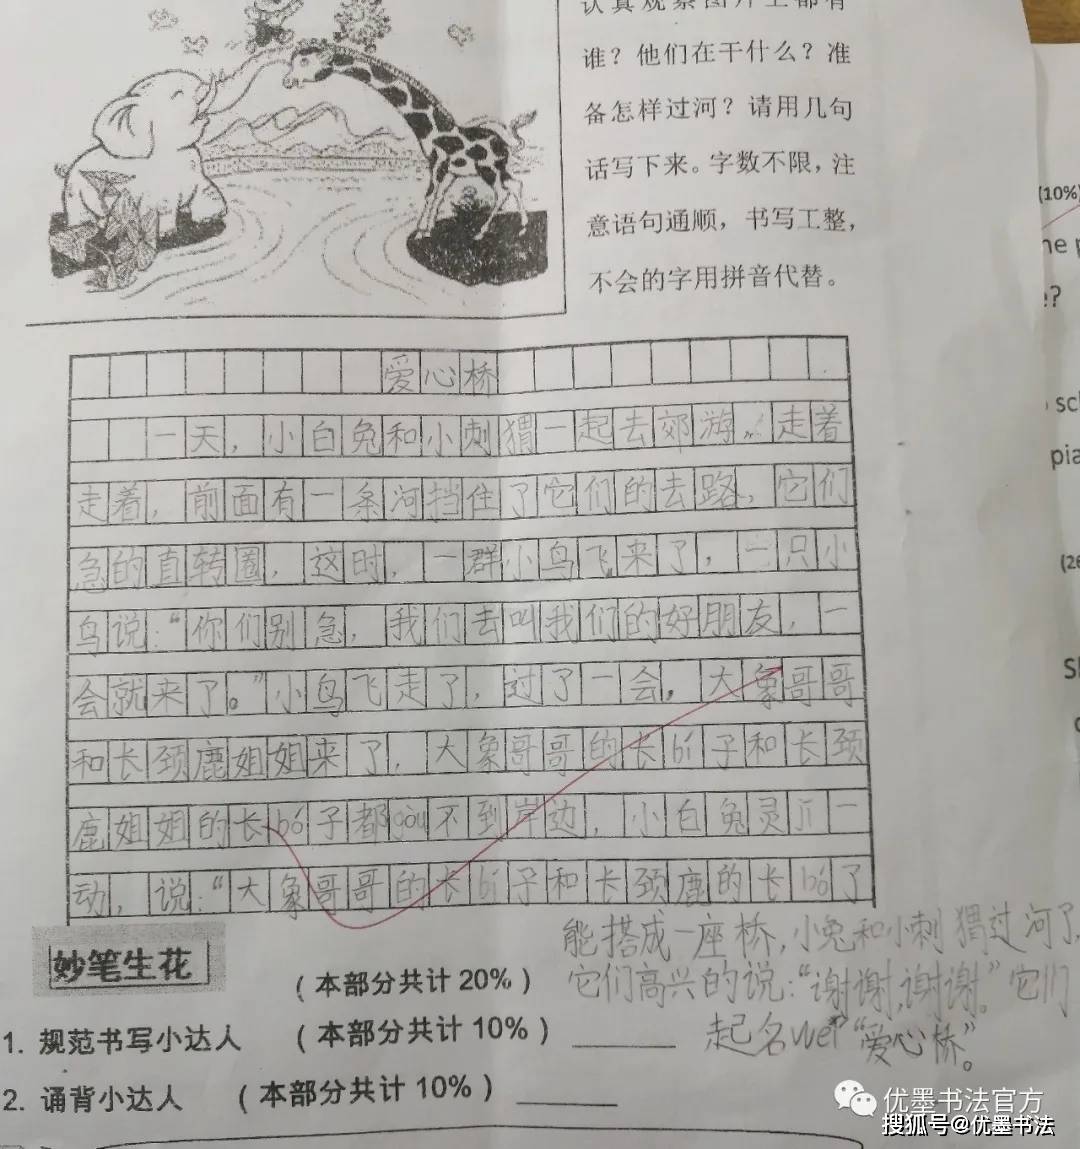 认真观察图片上都有
谁？他们在干什么？准
备怎样过河？请用几句
话写下来。字数不限，注
意语句通顺，书写工整，
不会的字用拼音代替。
(10%)
e?
爱心桥
一天，小白兔和小刺猬一起去郊游，走着
走着，前面有一条河挡住了它们的去路，它们
急的直转圈，这时，一群小鸟飞来了，一只小
鸟说：“你们别急，我们去叫我们的好朋友，一
会就来了。”小鸟飞走了，过了一会，大象哥哥
和长颈鹿姐姐来了，大象哥哥的长bí子和长颈
鹿姐姐的长bó子都gòu不到岸边，小白兔灵jī一
动，说：“大象哥哥的长bí子和长颈鹿的长bó了
能搭成一座桥，小兔和小刺猬过河了，
它们高兴的说：“谢谢，谢谢。”它们
起名wéi“爱心桥”。
妙笔生花
（本部分共计20%）
1. 规范书写小达人 （本部分共计10%）
2. 诵背小达人 （本部分共计10%）
优墨书法官方
搜狐号@优墨书法